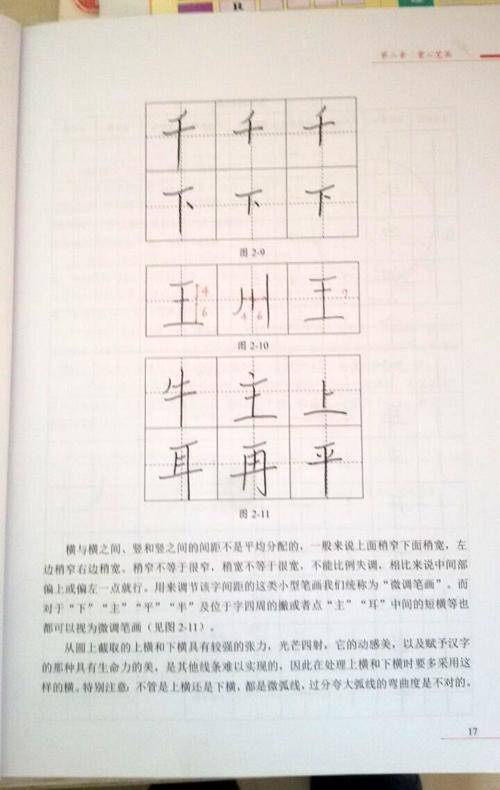 R
第二章 童心笔画
千 千 千
下 下 下
图 2-9
王 4 6 川 4 6 王 ?
图 2-10
牛 主 上
耳 再 平
图 2-11
横与横之间、竖和竖之间的间距不是平均分配的，一般来说上面稍窄下面稍宽，左
边稍窄右边稍宽。稍窄不等于很窄，稍宽不等于很宽，不能比例失调，相比来说中间部
偏上或偏左一点就行。用来调节该字间距的这类小型笔画我们统称为“微调笔画”。而
对于“下”“主”“平”“半”及位于字四周的撇或者点“主”“耳”中间的短横等也
都可以视为微调笔画（见图 2-11）。
从圆上截取的上横和下横具有较强的张力，光芒四射，它的动感美，以及赋予汉字
的那种具有生命力的美，是其他线条难以实现的，因此在处理上横和下横时要多采用这
样的横。特别注意：不管是上横还是下横，都是微弧线，过分夸大弧线的弯曲度是不对的。
17